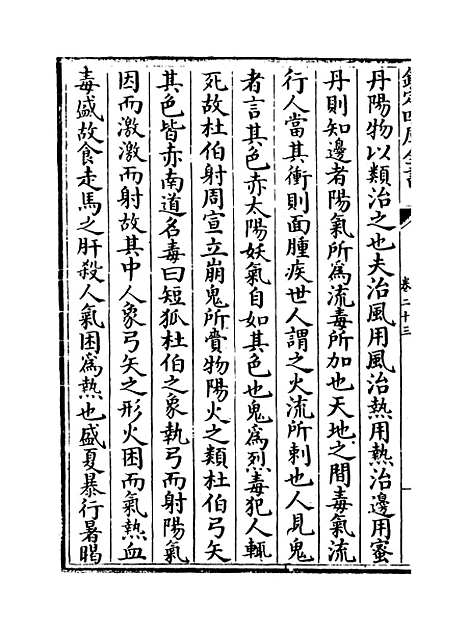 欽定四庫全書
卷二十三
丹陽物以類治之也夫治風用風治熱用熱治邊用蜜
丹則知邊者陽氣所爲流毒所加也天地之間毒氣流
行人當其衝則面腫疾世人謂之火流所刺也人見鬼
者言其色赤太陽妖氣自如其色也鬼爲烈毒犯人輒
死故杜伯射周宣立崩鬼所賷物陽火之類杜伯弓矢
其色皆赤南道名毒曰短狐杜伯之象執弓而射陽氣
因而激激而射故其中人象弓矢之形火困而氣熱血
毒盛故食走馬之肝殺人氣困爲熱也盛夏暴行暑暍